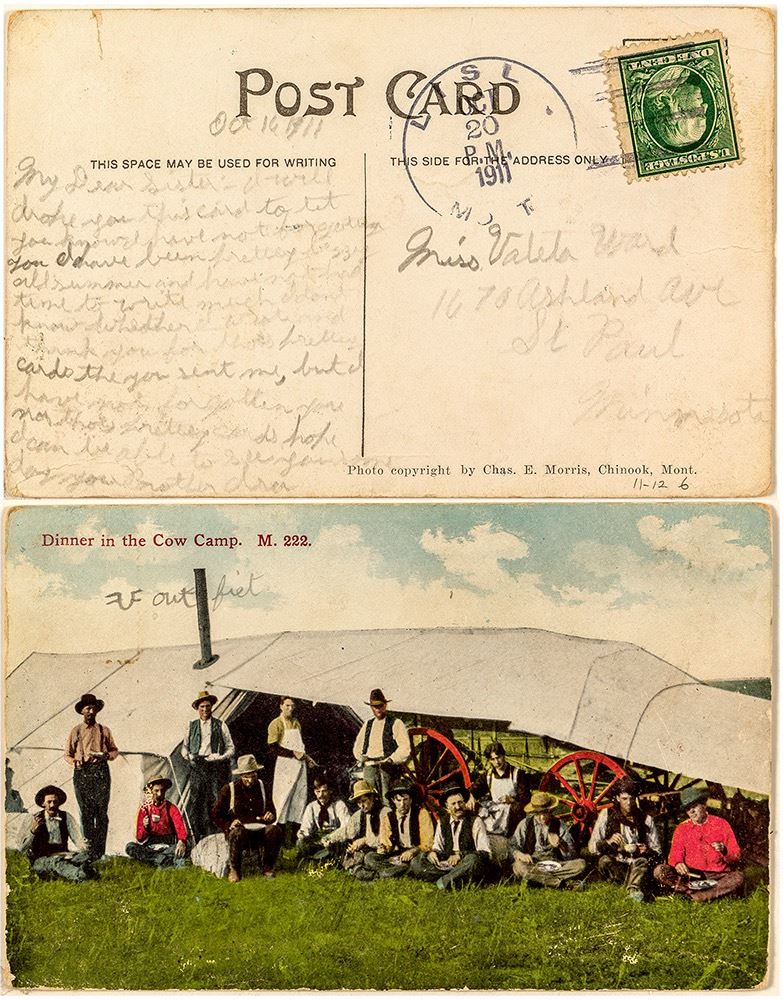 POST CARD
Oct 16 1911
THIS SPACE MAY BE USED FOR WRITING
THIS SIDE FOR THE ADDRESS ONLY
20
P.M.
1911
ONE CENT
U.S. POSTAGE
My Dear Sister I will
drope you this card to let
you know I have not forgotten
you I have been pretty busy
all summer and have not had
time to write much I dont
know whether I wrote and
thank you for thos pretty
cards the you sent me, but I
have not forgotten you
nor thos pretty cards hope
I can be able to see you some
day your Brother
Miss Valeta Ward
1670 Ashland Ave
St Paul
Minnesota
Photo copyright by Chas. E. Morris, Chinook, Mont.
11-12 6
Dinner in the Cow Camp. M. 222.
out fiet